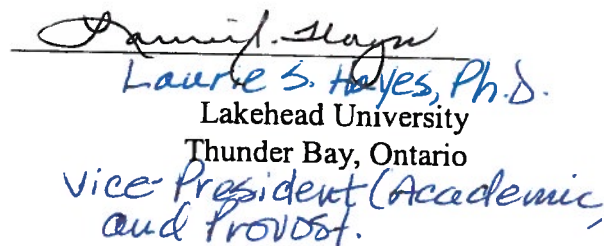 Laurie S. Hayes, Ph.D.
Lakehead University
Thunder Bay, Ontario
Vice-President (Academic)
and Provost.